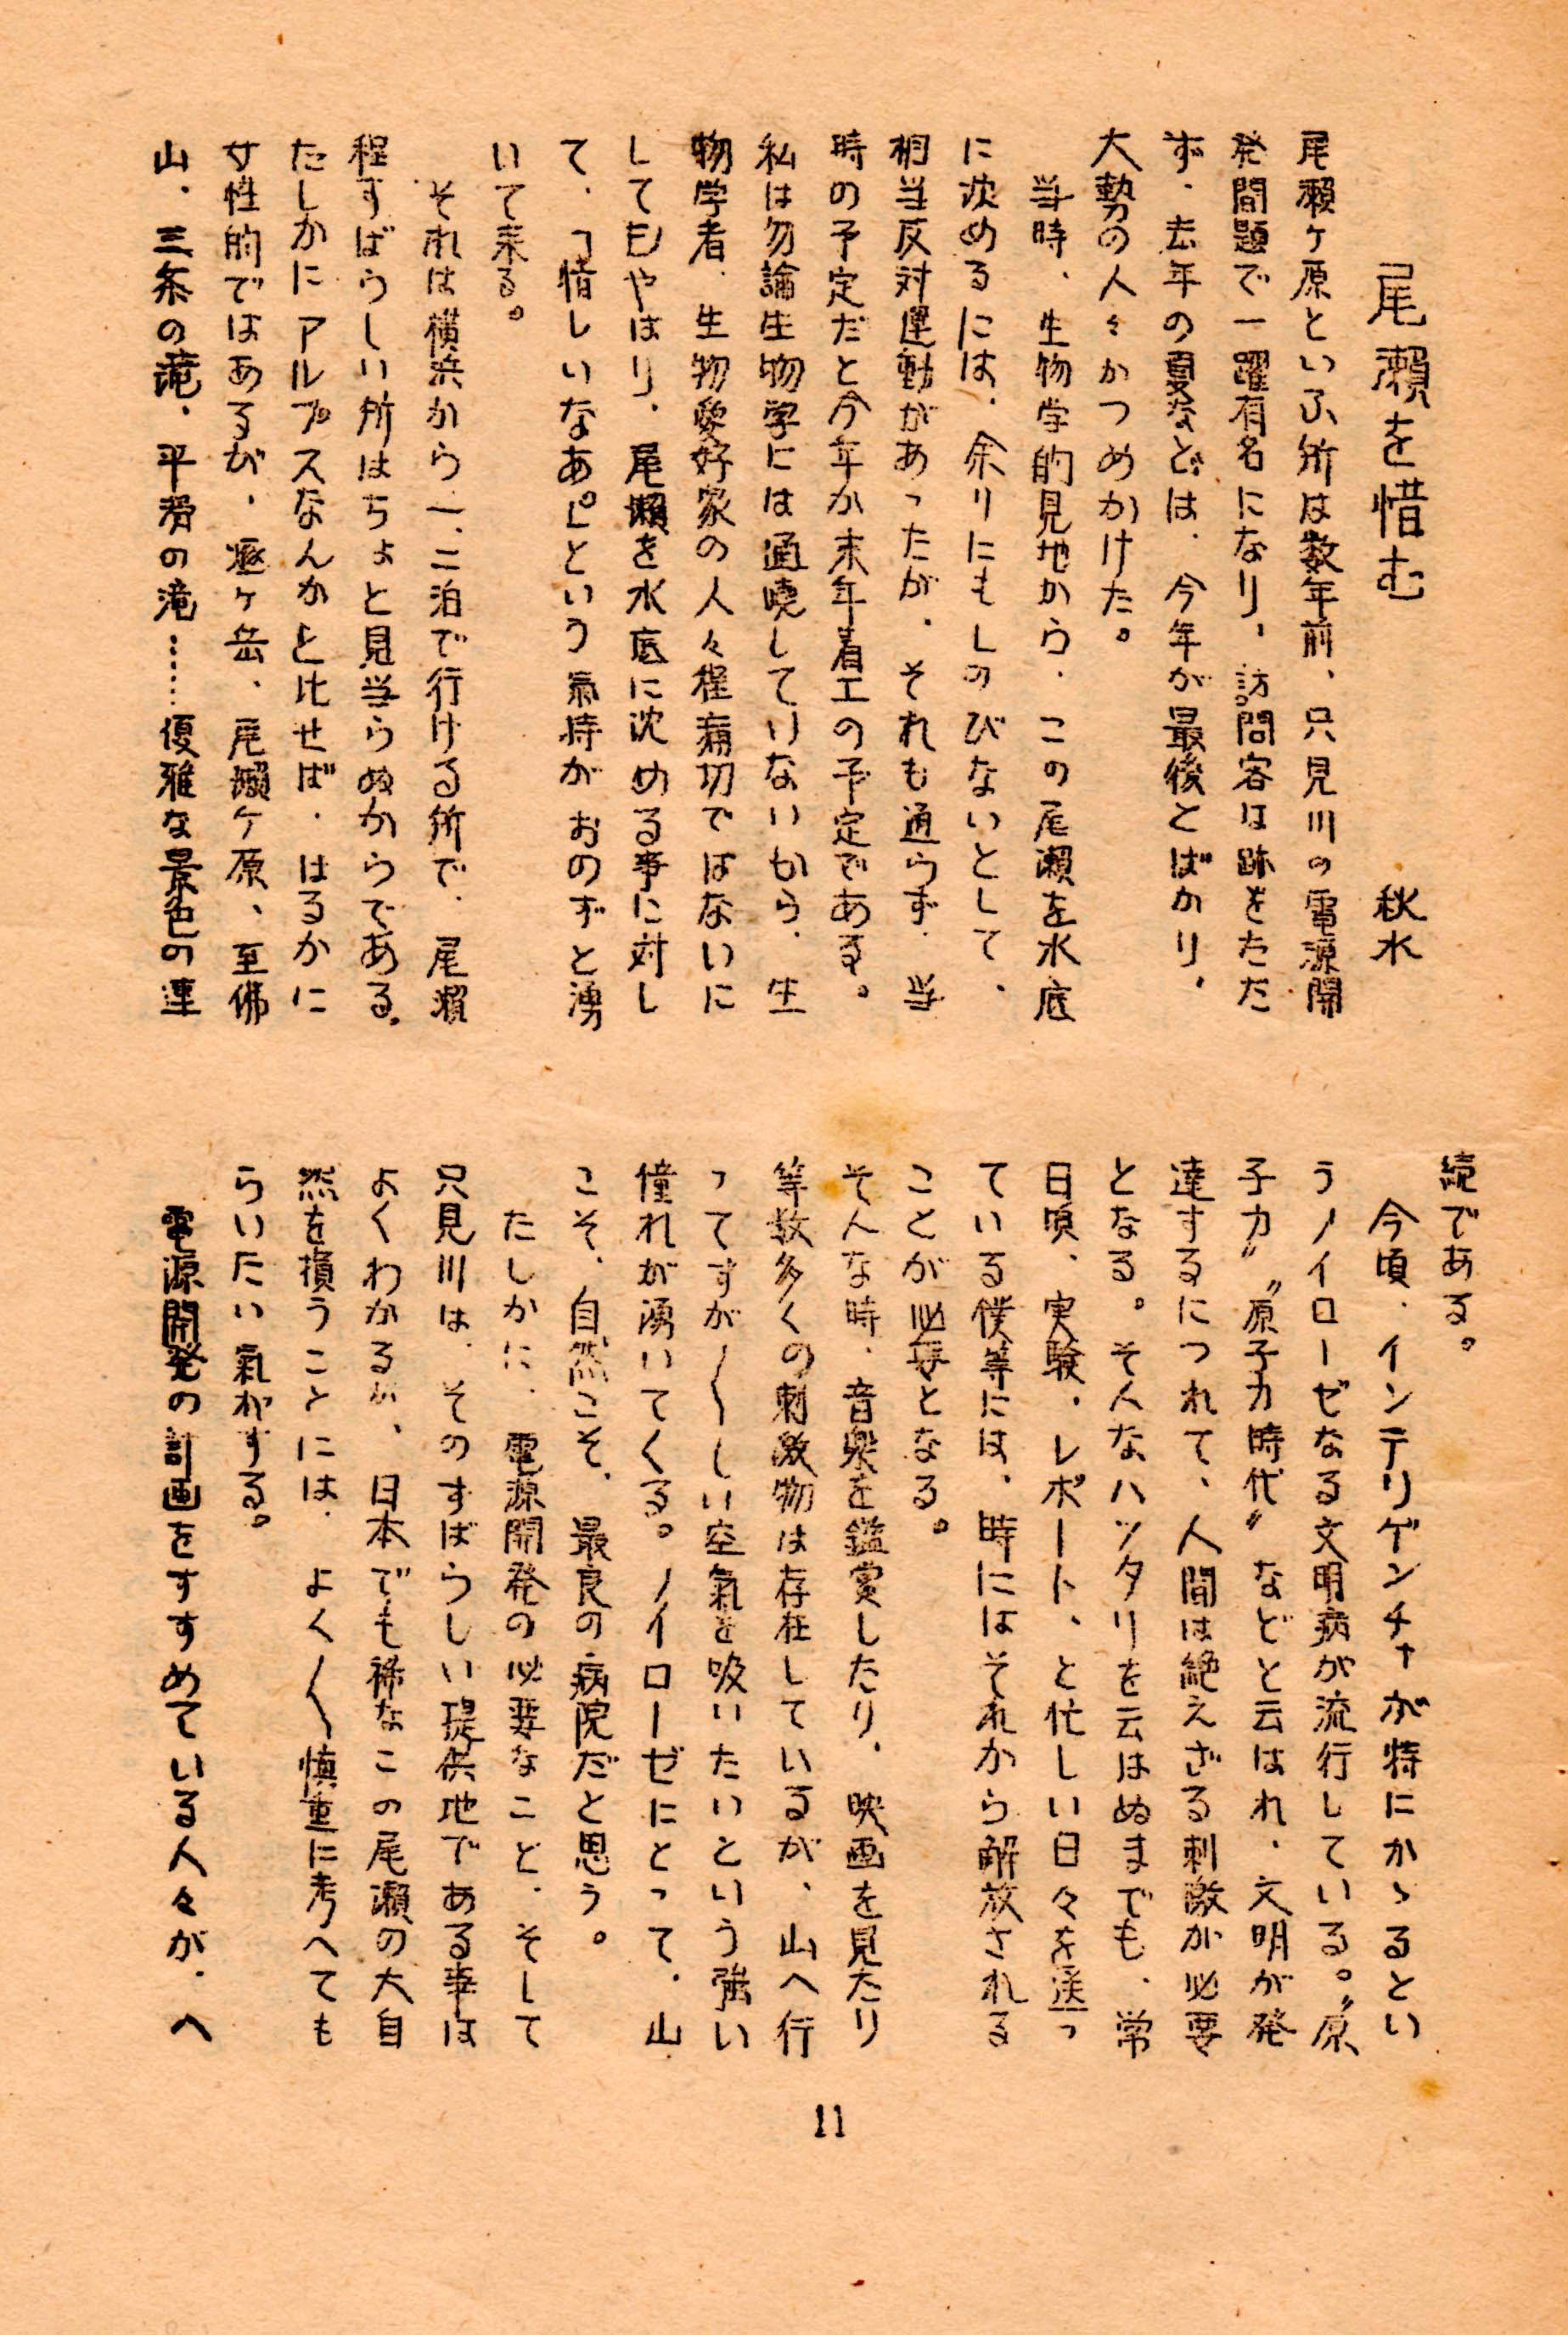 尾瀬を惜む
秋水
尾瀬ヶ原といふ所は数年前、只見川の電源開
発問題で一躍有名になり、訪問客は跡をたた
ず、去年の夏などは、今年が最後とばかり、
大勢の人々がつめかけた。
当時、生物学的見地から、この尾瀬を水底
に沈めるには、余りにもしのびないとして、
相当反対運動があったが、それも通らず、当
時の予定だと今年か末年着工の予定である。
私は勿論生物学には通暁していないから、生
物学者、生物愛好家の人々程痛切ではないに
してもやはり、尾瀬を水底に沈める事に対し
て、「惜しいなあ。」という氣持がおのずと湧
いて来る。
それは横浜から一、二泊で行ける所で、尾瀬
程すばらしい所はちょと見当らぬからである。
たしかにアルプスなんかと比せば、はるかに
女性的ではあるが、燧ヶ岳、尾瀬ケ原、至佛
山、三条の滝、平滑の滝……優雅な景色の連
続である。
今頃、インテリゲンチャが特にかゝるとい
うノイローゼなる文明病が流行している。〝原
子力〟〝原子力時代〟などと云はれ、文明が発
達するにつれて、人間は絶えざる刺激が必要
となる。そんなハッタリを云はぬまでも、常
日頃、実験、レポート、と忙しい日々を送っ
ている僕等には、時にはそれから解放される
ことが必要となる。
そんな時、音楽を鑑賞したり、映画を見たり
等数多くの刺激物は存在しているが、山へ行
ってすが〳〵しい空氣を吸いたいという強い
憧れが湧いてくる。ノイローゼにとって、山
こそ、自然こそ、最良の病院だと思う。
たしかに、電源開発の必要なこと、そして
只見川は、そのすばらしい提供地である事は
よくわかるが、日本でも稀なこの尾瀬の大自
然を損うことには、よく〳〵慎重に考へても
らいたい氣がする。
電源開発の計画をすすめている人々が、へ
11